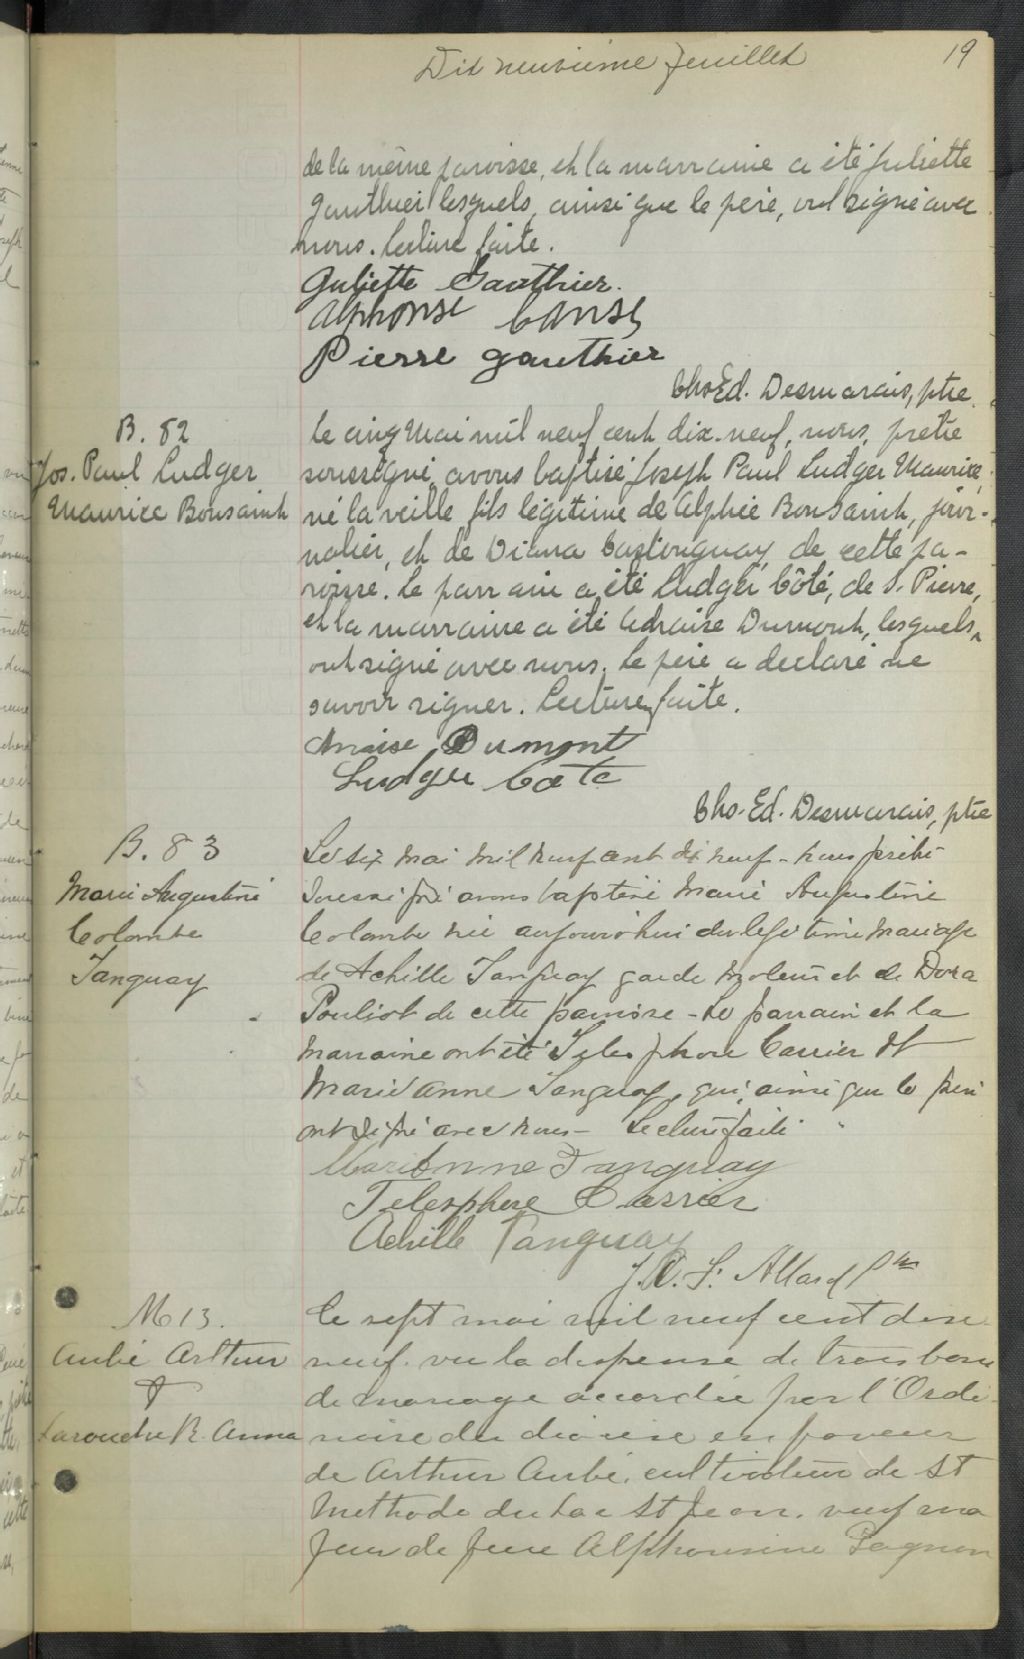 Dix neuvième feuillet
19
de la même paroisse, et la marraine a été Juliette
Gauthier lesquels, ainsi que le père, ont signé avec
nous. Lecture faite.
Juliette Gauthier.
Alphonse
Pierre Gauthier
Chs-Ed. Desmarais, ptre
B. 82
Jos. Paul Ludger
Maurice Bonsaint
Le cinq Mai mil neuf cent dix-neuf, nous, prêtre
soussigné, avons baptisé Joseph Paul Ludger Maurice,
né la veille fils légitime de Alphée Bonsaint, jour-
nalier, et de Diana Castonguay, de cette pa-
roisse. Le parrain a été Ludger Côté, de S. Pierre,
et la marraine a été Dumont, lesquels
ont signé avec nous. Le père a déclaré ne
savoir signer. Lecture faite.
Dumont
Ludger Coté
Chs-Ed. Desmarais, ptre
B. 83
Marie Augustine
Colombe
Tanguay
Le six mai mil neuf cent dix neuf - nous prêtre
soussigné avons baptisé Marie Augustine
Colombe née aujourd'hui du légitime mariage
de Achille Tanguay garde moteur et de Dora
Pouliot de cette paroisse - Le parrain et la
marraine ont été Télesphore Carrier et
Marie Anne Tanguay, qui, ainsi que le père
ont signé avec nous - Lecture faite
Marie Anne Tanguay
Telesphore Carrier
Achille Tanguay
Allard ptre
M 13.
Aubé Arthur
&
Larouche R. Anna
Le sept mai mil neuf cent dix
neuf. vu la dispense de trois bans
de mariage accordée par l'Ordi-
naire du diocèse en faveur
de Arthur Aubé, cultivateur de St
Methode du Lac St Jean. veuf ma
jeur de feue Alphonsine Gagnon